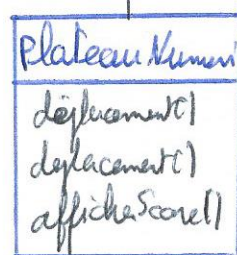 Plateau Numeri
déplacement()
deplacement()
afficherScore()